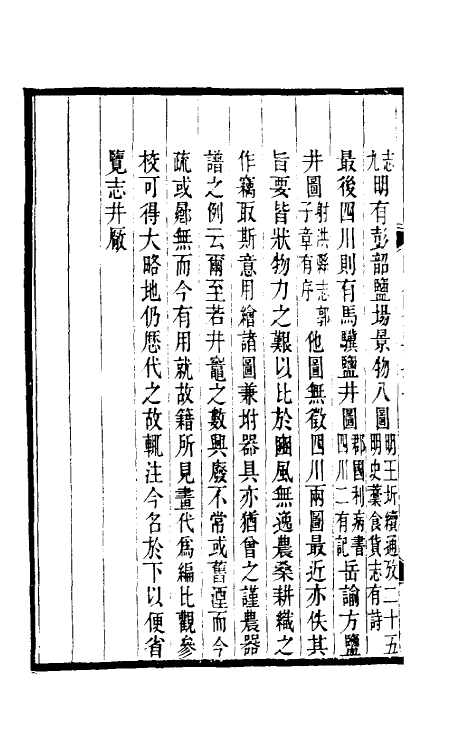 志九明有彭韶鹽場景物八圖明王圻續通攷二十五明史藁食貨志有詩
最後四川則有馬驥鹽井圖郡國利病書四川二有記岳諭方鹽
井圖射洪縣志郭子章有序他圖無徵四川兩圖最近亦佚其
旨要皆狀物力之艱以比於豳風無逸農桑耕織之
作竊取斯意用繪諸圖兼坿器具亦猶曾之謹農器
譜之例云爾至若井竈之數興廢不常或舊湮而今
疏或鄉無而今有用就故籍所見畫代爲編比觀參
校可得大略地仍歷代之故輒注今名於下以便省
覽志井廠